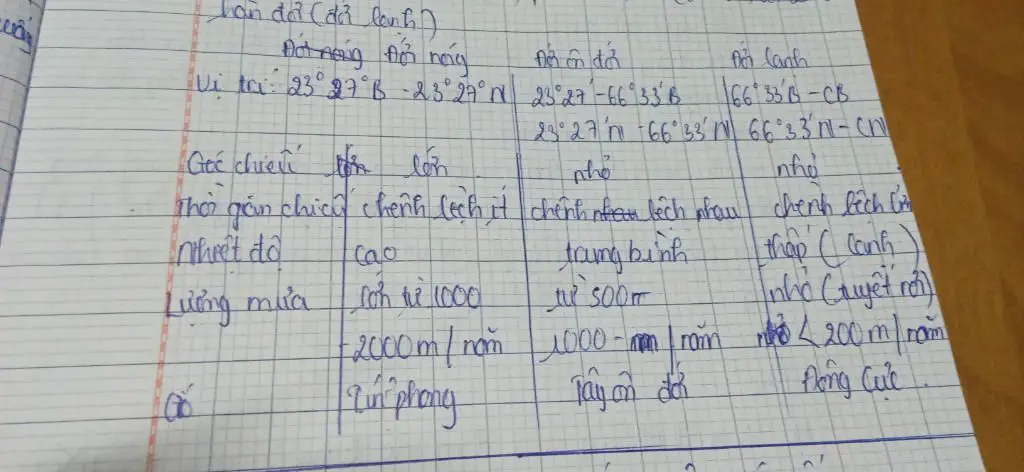 hàn đới (đới lạnh)
Đới nóng Đới ôn đới Đới lạnh
Vị trí: 23° 27°B - 23° 27°N 23°27' - 66°33'B 66°33'B - CB
23°27'N - 66°33'N 66°33'N - CN
Góc chiếu lớn nhỏ nhỏ
Thời gian chiếu chênh lệch ít chênh lệch nhau chênh lệch
Nhiệt độ cao trung bình thấp (lạnh)
Lượng mưa lớn từ 1000 từ 500m nhỏ (tuyết rơi)
- 2000m/năm 1000 - /năm < 200m/năm
Gió Tín phong Tây ôn đới Đông Cực.